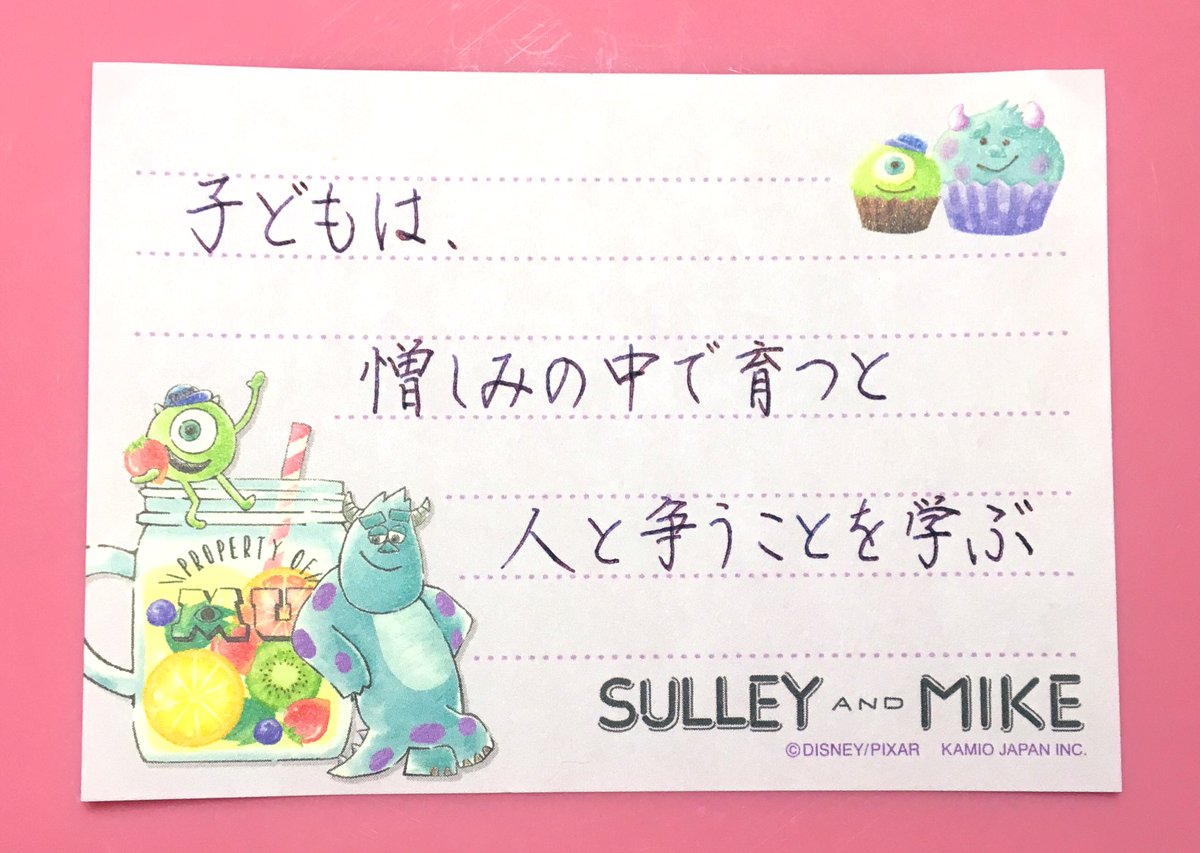 子どもは、
憎しみの中で育つと
人と争うことを学ぶ
PROPERTY OF
MU
SULLEY AND MIKE
©DISNEY/PIXAR KAMIO JAPAN INC.